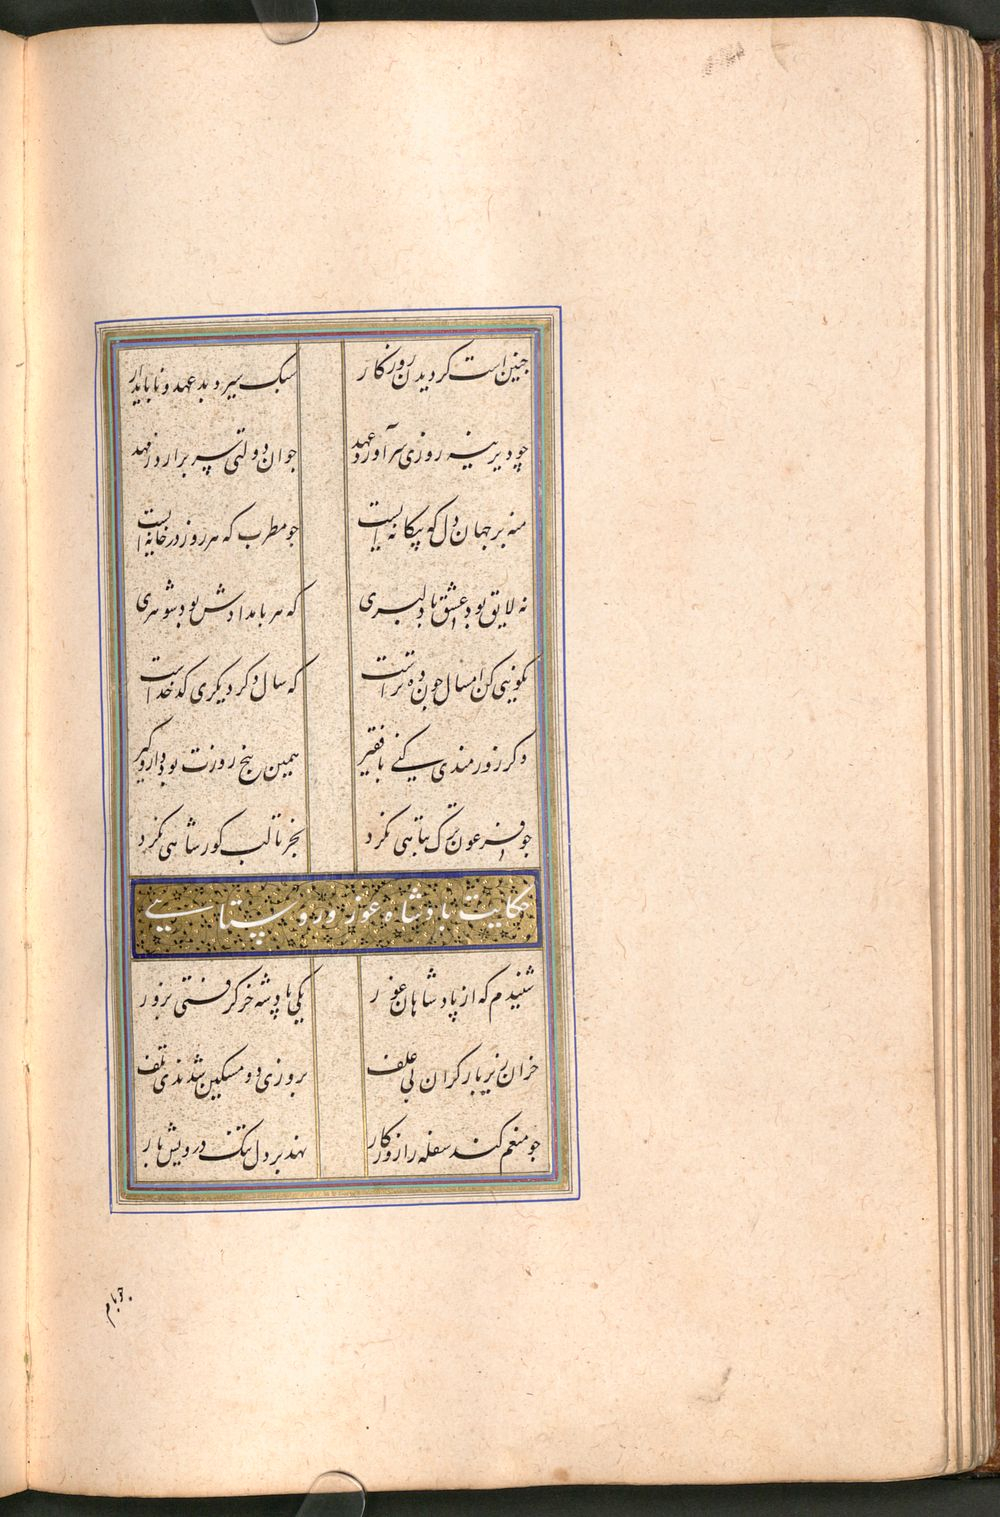 چنین است کردیدن روزکار سبک سیر و بد عهد و ناپایدار
چو دیرینه روزی سرآورد عهد جوان دولتی سر برارد ز مهد
منه بر جهان دل که بیکانه ایست چو مطرب که هر روز در خانه ایست
نه لایق بود عشق با دلبری که هر بامدادش بود شوهری
نکویی کن امسال چون ده تراست که سال دکر دیکری کدخداست
وکر زورمندی کنی با فقیر همین پنج روزت بود دار و کیر
چو فرعون ترک تباهی نکرد بجز تا لب کور شاهی نکرد
حکایت پادشاه غور و روستایی
شنیدم که از پادشاهان غور یکی پادشه خر کرفتی بزور
خران زیر بار کران بی علف بروزی دو مسکین شدندی تلف
چو منعم کند سفله را روزکار نهد بر دل تنک درویش بار